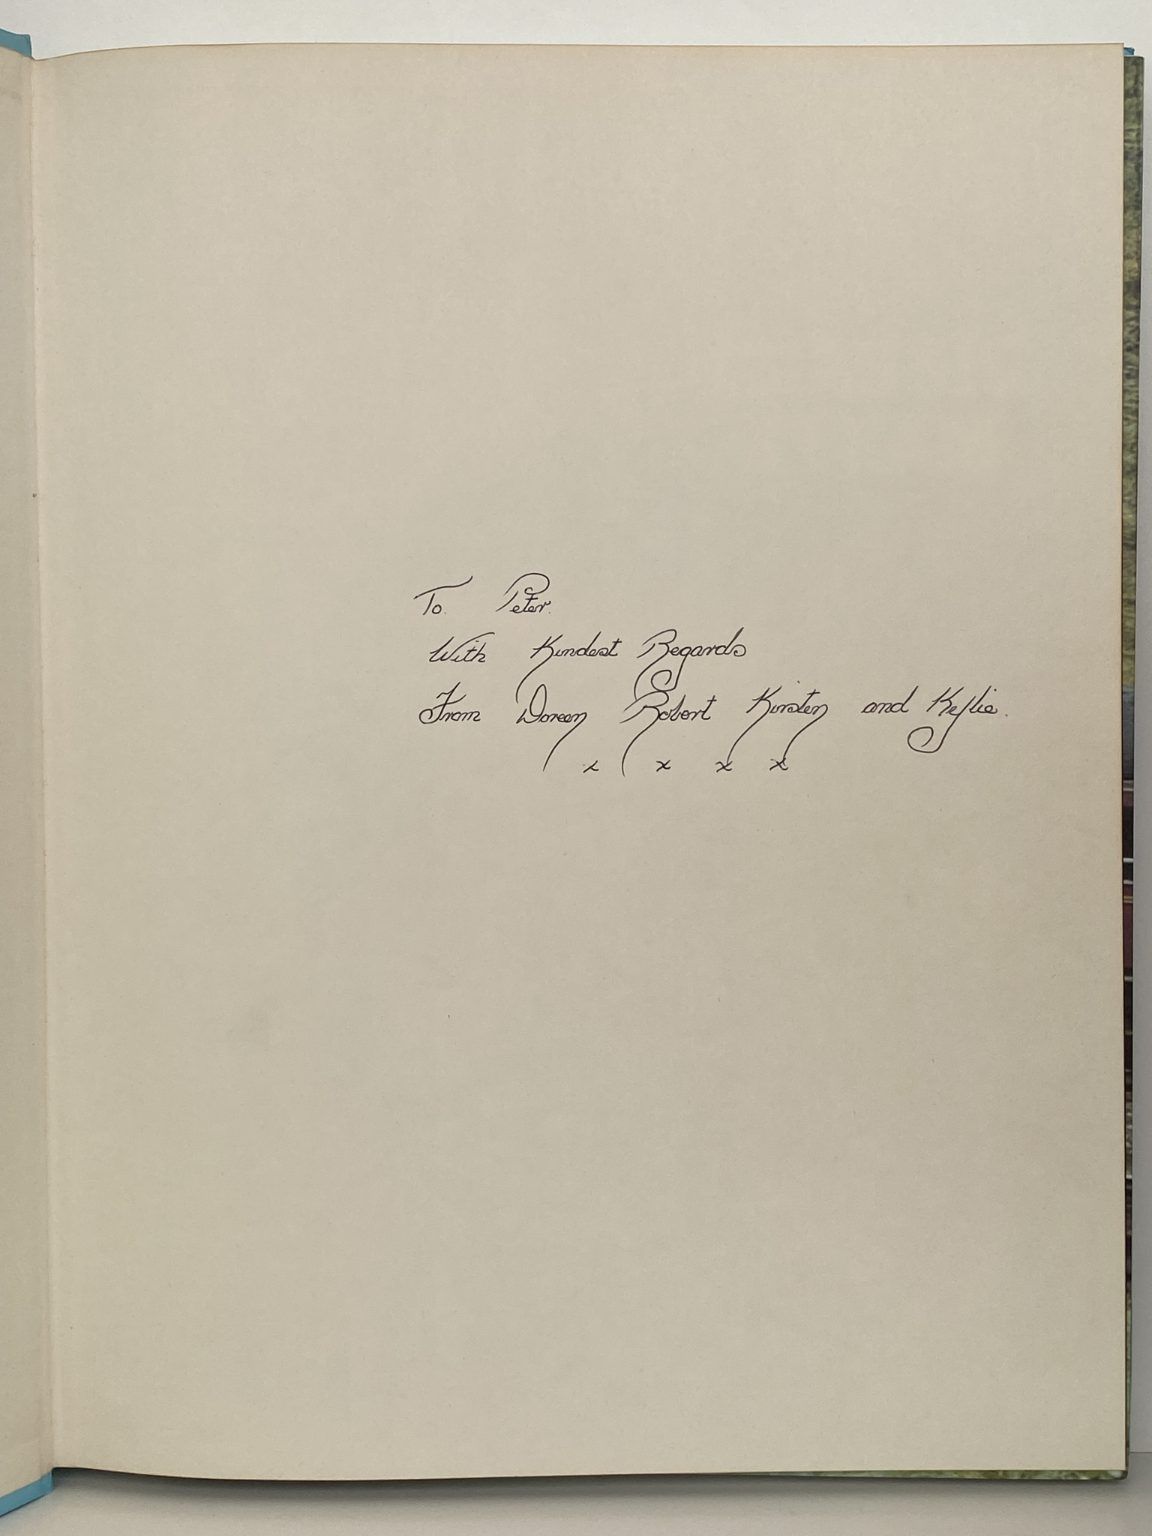 To. Peter.
With Kindest Regards
From Doreen Robert Kirsten and Kylie.
x x x x